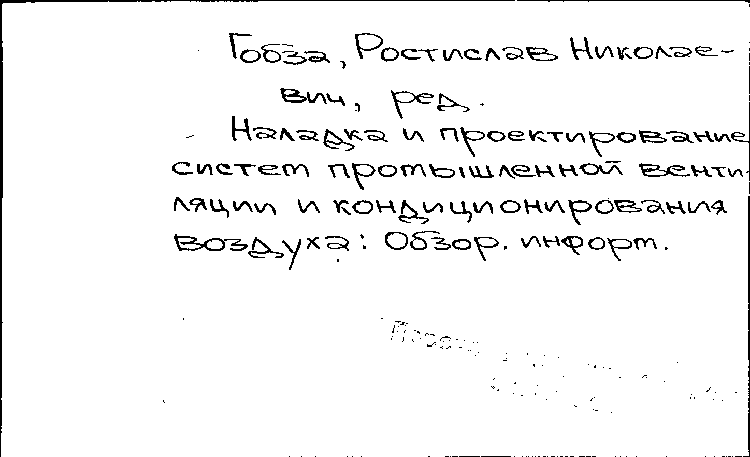 Гобза, Ростислав Николае-
вич, ред.
Наладка и проектирование
систем промышленной венти-
ляции и кондиционирования
воздуха: Обзор. информ.